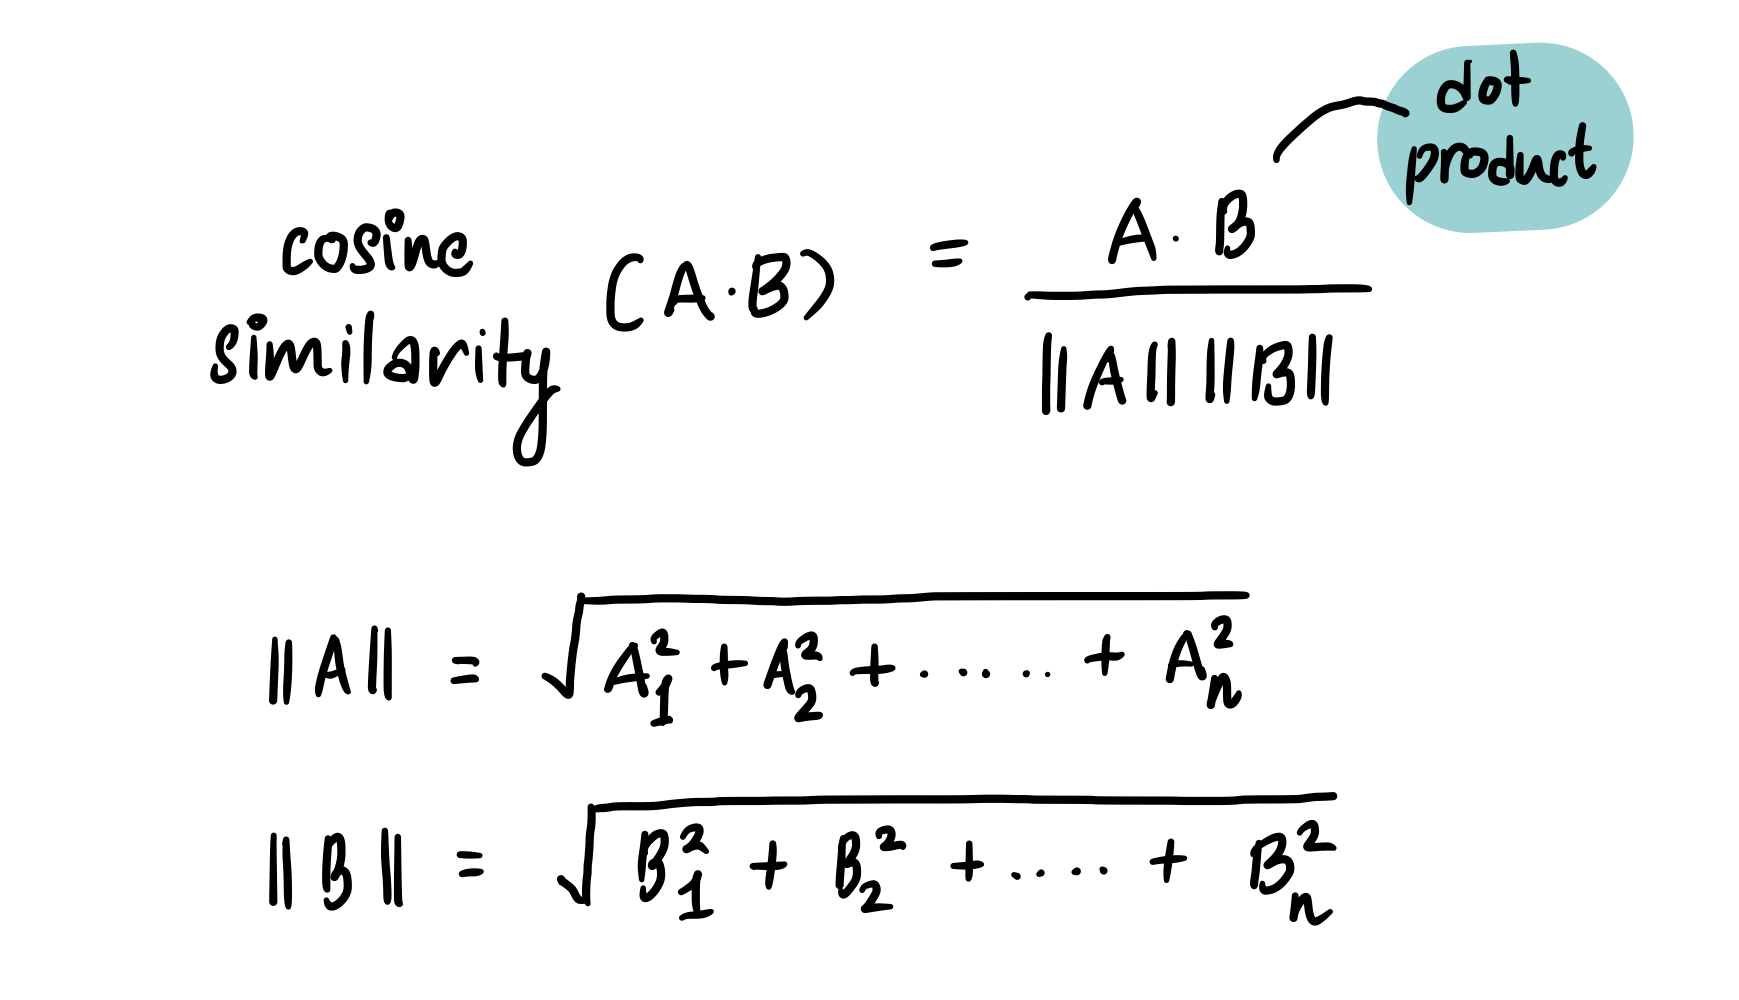 dot
product
cosine
similarity (A·B) = A·B
||A|| ||B||
||A|| = √A₁² + A₂² + ..... + Aₙ²
||B|| = √B₁² + B₂² + ..... + Bₙ²